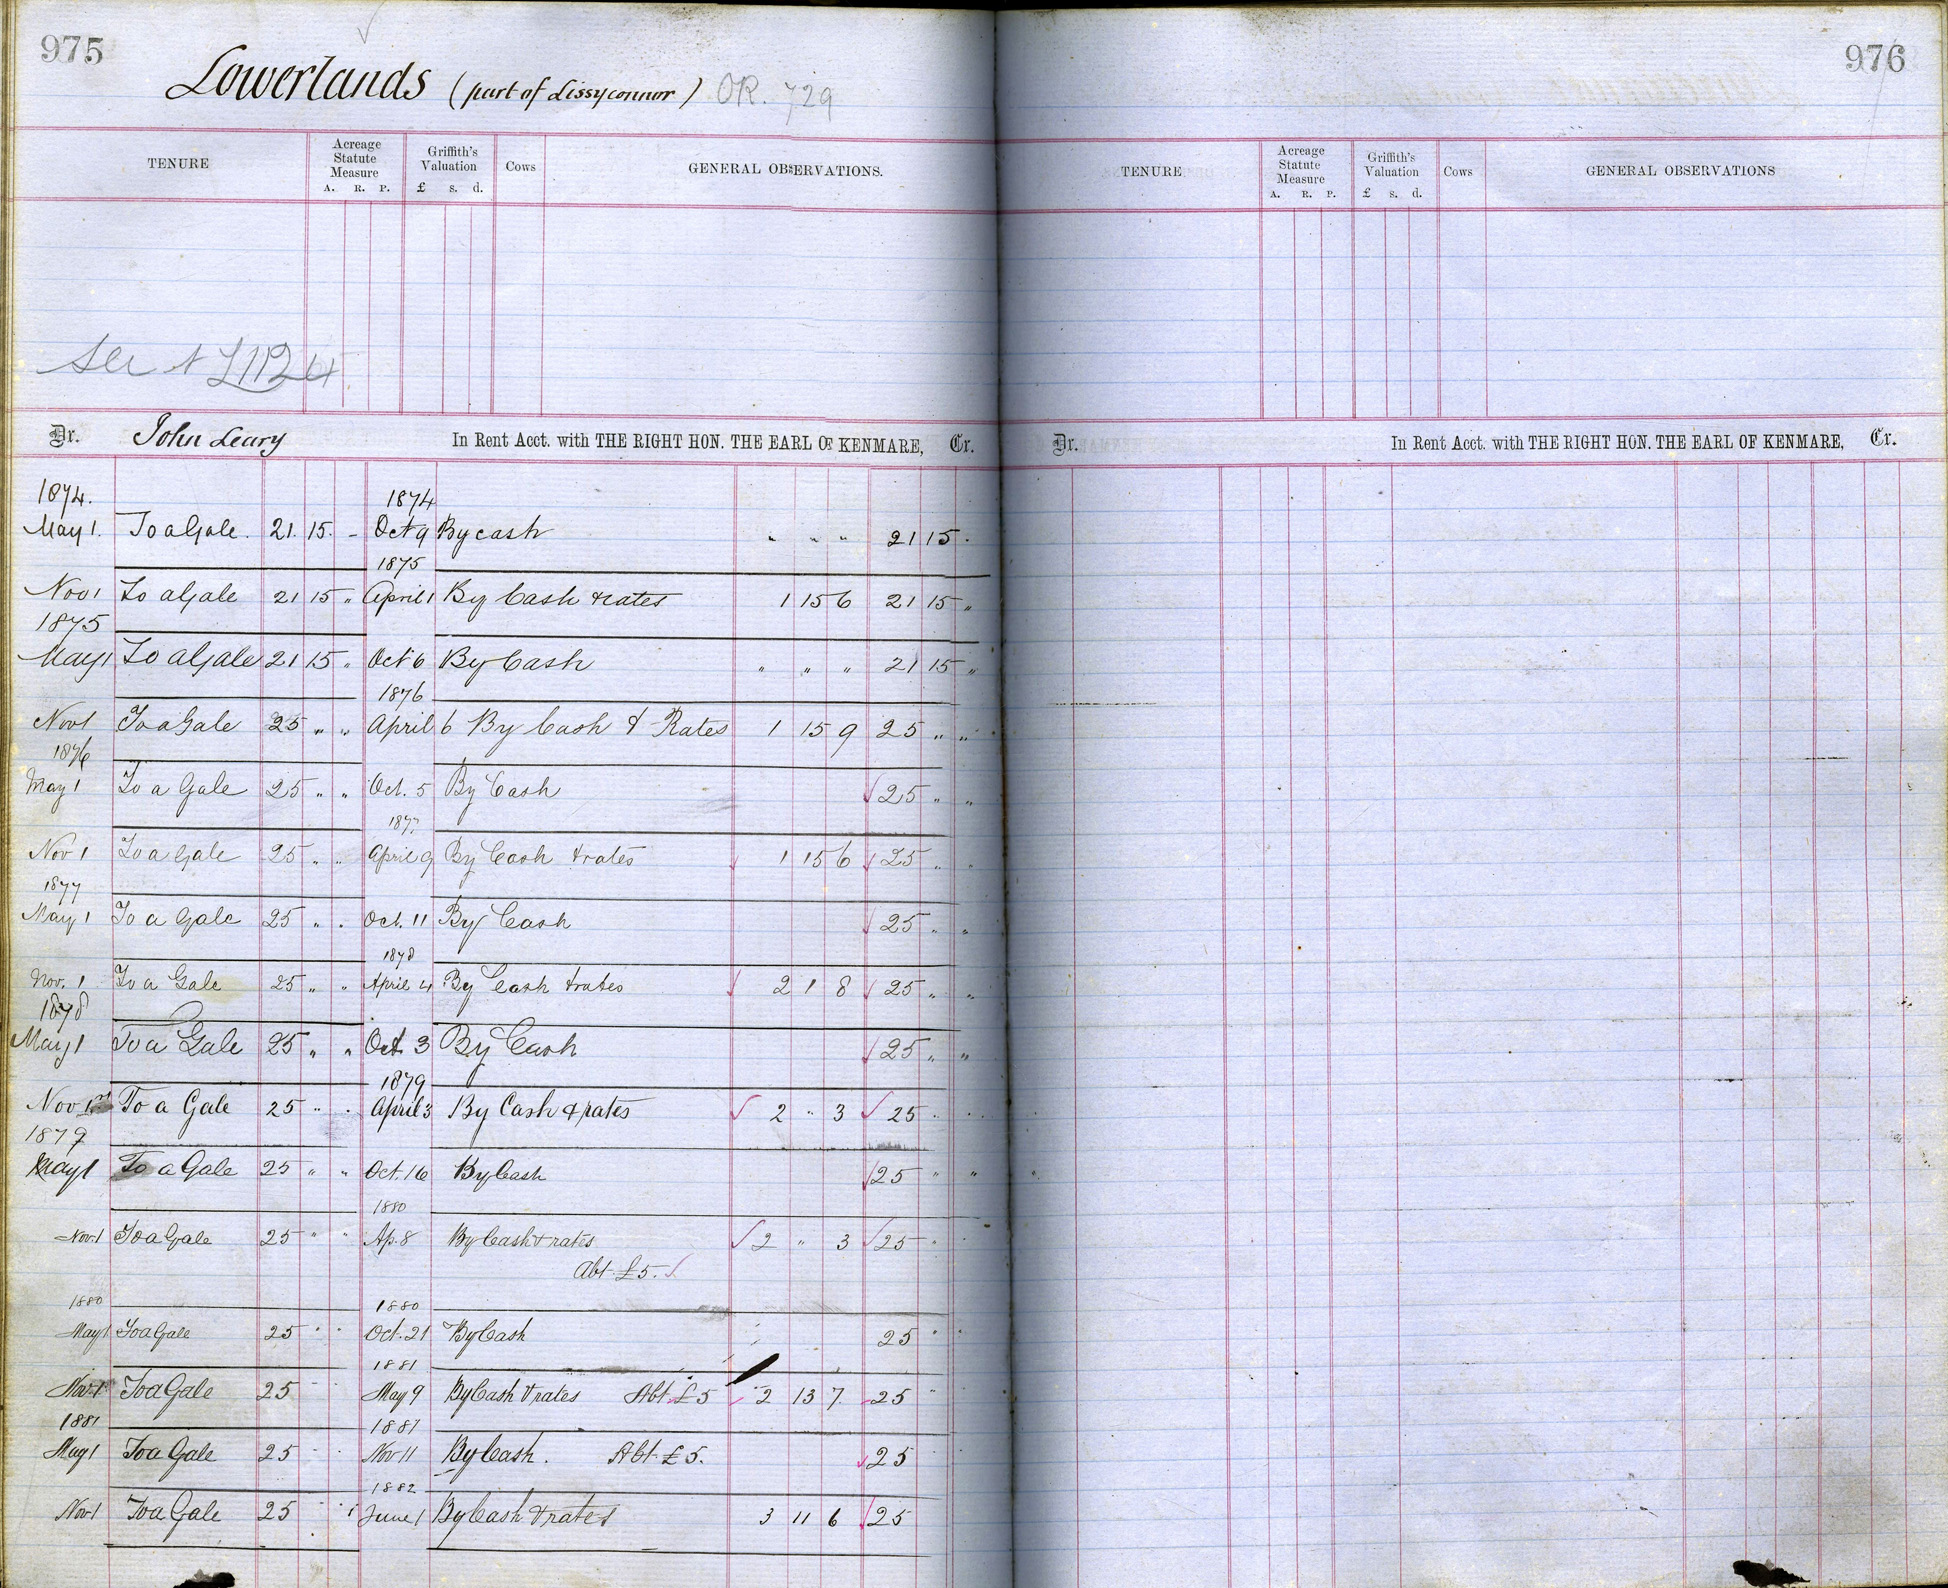 975
Lowerlands (part of Lissyconnor) OR. 729
TENURE Acreage Statute Measure A. R. P. Griffith's Valuation £ s. d. Cows GENERAL OBSERVATIONS.
John Leary
Dr. In Rent Acct. with THE RIGHT HON. THE EARL OF KENMARE, Cr.
1874. 1874
May 1. To a Gale. 21. 15. - Oct 9 By cash " " " 21 15 "
1875
Nov 1 To a Gale 21 15 " April 1 By Cash & rates 1 15 6 21 15 "
1875
May 1 To a Gale 21 15 " Oct 6 By Cash " " " 21 15 "
1876
Nov 1 To a Gale 25 " " April 6 By Cash & Rates 1 15 9 25 " "
1876
May 1 To a Gale 25 " " Oct. 5 By Cash 25 " "
1877
Nov 1 To a Gale 25 " " April 9 By Cash & rates 1 15 6 25 " "
1877
May 1 To a Gale 25 " " Oct. 11 By Cash 25 " "
1878
Nov. 1 To a Gale 25 " " April 4 By Cash & rates 2 1 8 25 " "
1878
May 1 To a Gale 25 " " Oct. 3 By Cash 25 " "
1879
Nov 1st To a Gale 25 " " April 3 By Cash & rates 2 " 3 25 " "
1879
May 1 To a Gale 25 " " Oct. 16 By Cash 25 " "
1880
Nov 1 To a Gale 25 " " Ap. 8 By Cash & rates 2 " 3 25 " "
Abt £5.
1880 1880
May 1 To a Gale 25 " " Oct. 21 By Cash 25 " "
1881
Nov 1 To a Gale 25 May 9 By Cash & rates Abt £5 2 13 7 25 "
1881 1881
May 1 To a Gale 25 " " Nov 11 By Cash. Abt £5. 25
1882
Nov 1 To a Gale 25 " " June 1 By Cash & rates 3 11 6 25
976
TENURE Acreage Statute Measure A. R. P. Griffith's Valuation £ s. d. Cows GENERAL OBSERVATIONS
Dr. In Rent Acct. with THE RIGHT HON. THE EARL OF KENMARE, Cr.